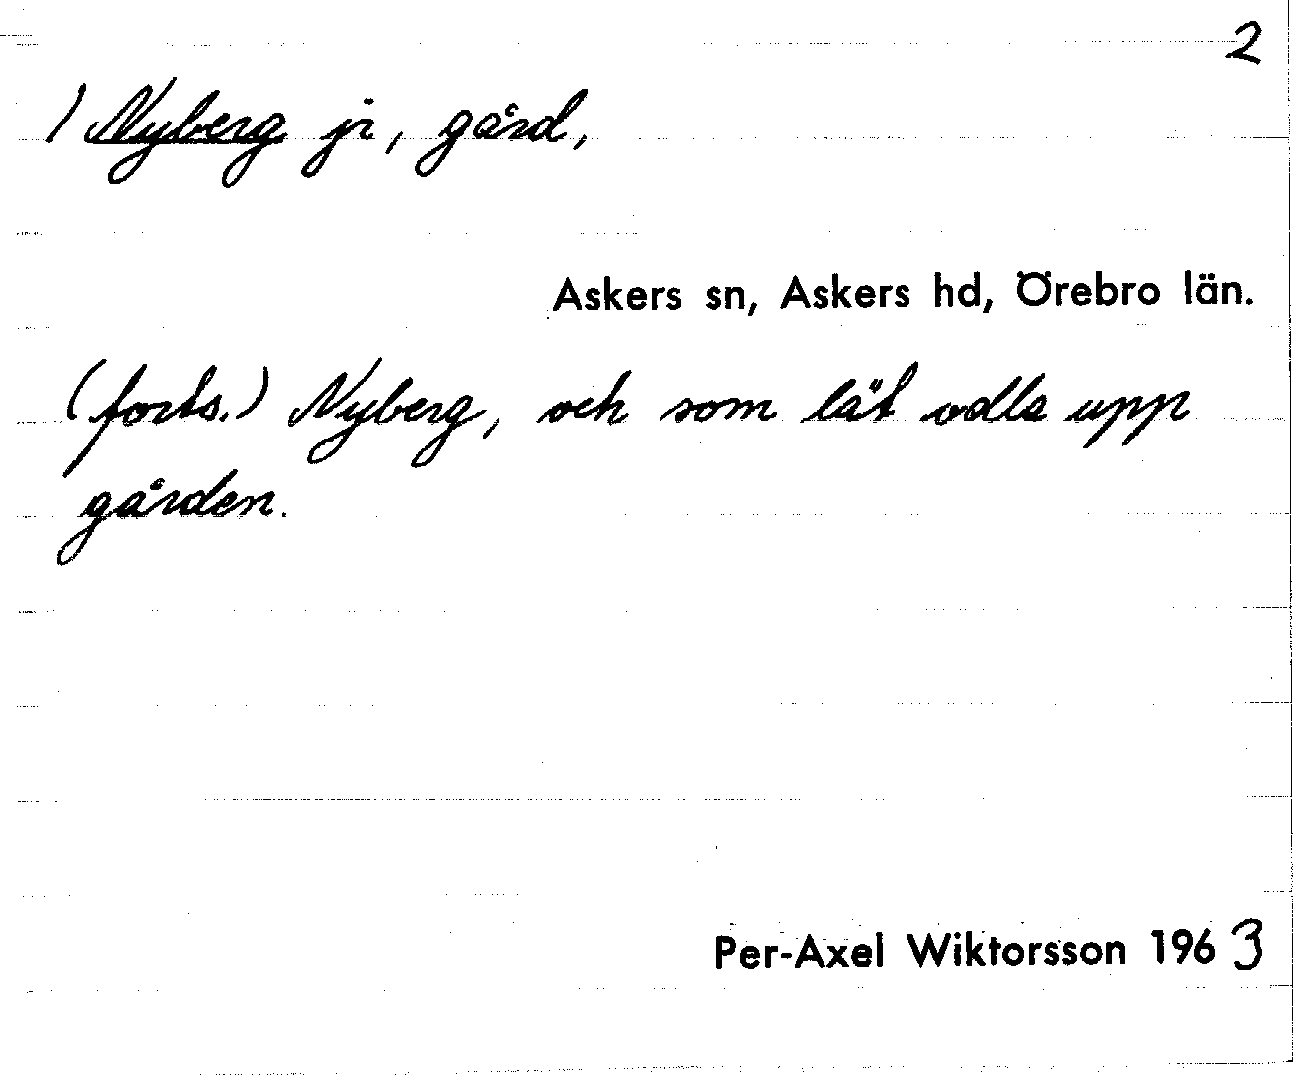 2
) Nyberg jr, gård,
Askers sn, Askers hd, Örebro län.
(forts.) Nyberg, och som lät odla upp
gården.
Per-Axel Wiktorsson 1963